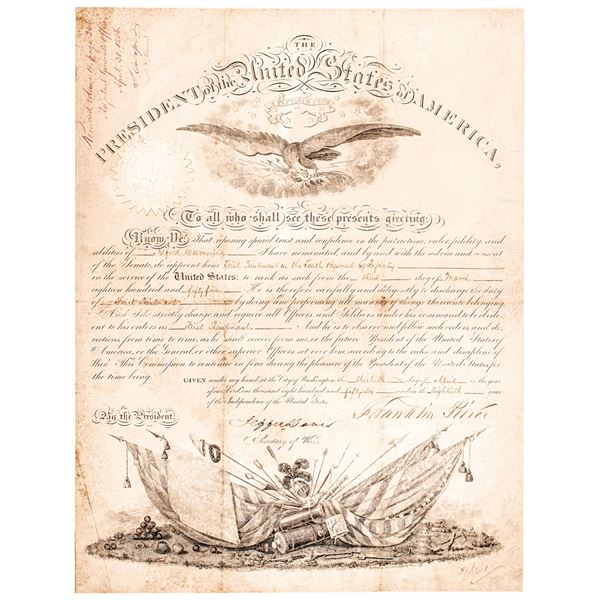 April 30 1856
THE
PRESIDENT of the United States of AMERICA,
E PLURIBUS UNUM
To all who shall see these presents greeting:
Know Ye, That reposing special trust and confidence in the patriotism, valor, fidelity, and
abilities of Alfred Cumming I have nominated, and by and with the advice and consent
of the Senate, do appoint him First Lieutenant in the Tenth Regiment of Infantry
in the service of the United States: to rank as such from the third day of March
eighteen hundred and fifty five He is therefore carefully and diligently to discharge the duty
of First Lieutenant by doing and performing all manner of things thereunto belonging.
And I do strictly charge, and require all Officers and Soldiers under his command to be obedi-
ent to his orders as First Lieutenant And he is to observe and follow such orders, and di-
rections, from time to time, as he shall receive from me, or the future President of the United States of
America, or the General, or other superior Officers set over him, according to the rules and discipline of
War. This Commission to continue in force during the pleasure of the President of the United States, for
the time being.
GIVEN under my hand, at the City of Washington, this thirtieth day of April in the year
of our Lord, one thousand eight hundred and fifty six and in the Eightieth year
of the Independence of the United States.
By the President,
Franklin Pierce
Jeffer Davis
Secretary of War.